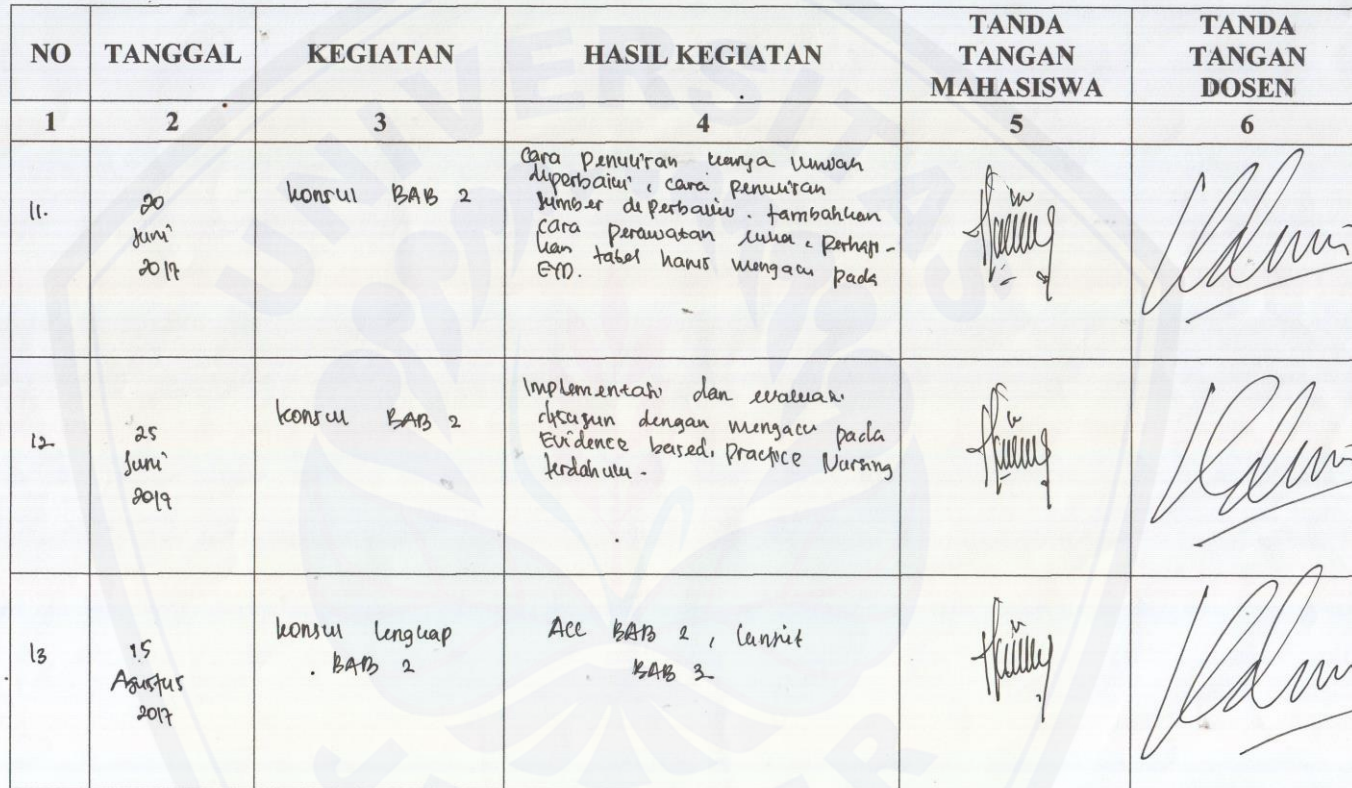 NO TANGGAL KEGIATAN HASIL KEGIATAN TANDA TANGAN MAHASISWA TANDA TANGAN DOSEN
1 2 3 4 5 6
11. 20 Juni 2017
konsul BAB 2
Cara penulisan karya ilmiah
diperbaiki, cara penulisan
sumber diperbaiki. tambahkan
cara perawatan luka, perhati-
kan tabel harus mengacu pada
EYD.
12. 25 Juni
konsul BAB 2
Implementasi dan evaluasi
disusun dengan mengacu pada
Evidence based, Practice Nursing
terdahulu.
13 15 Agustus 2017
konsul lengkap
BAB 2
Acc BAB 2, lanjut
BAB 3
UNIVERSITAS